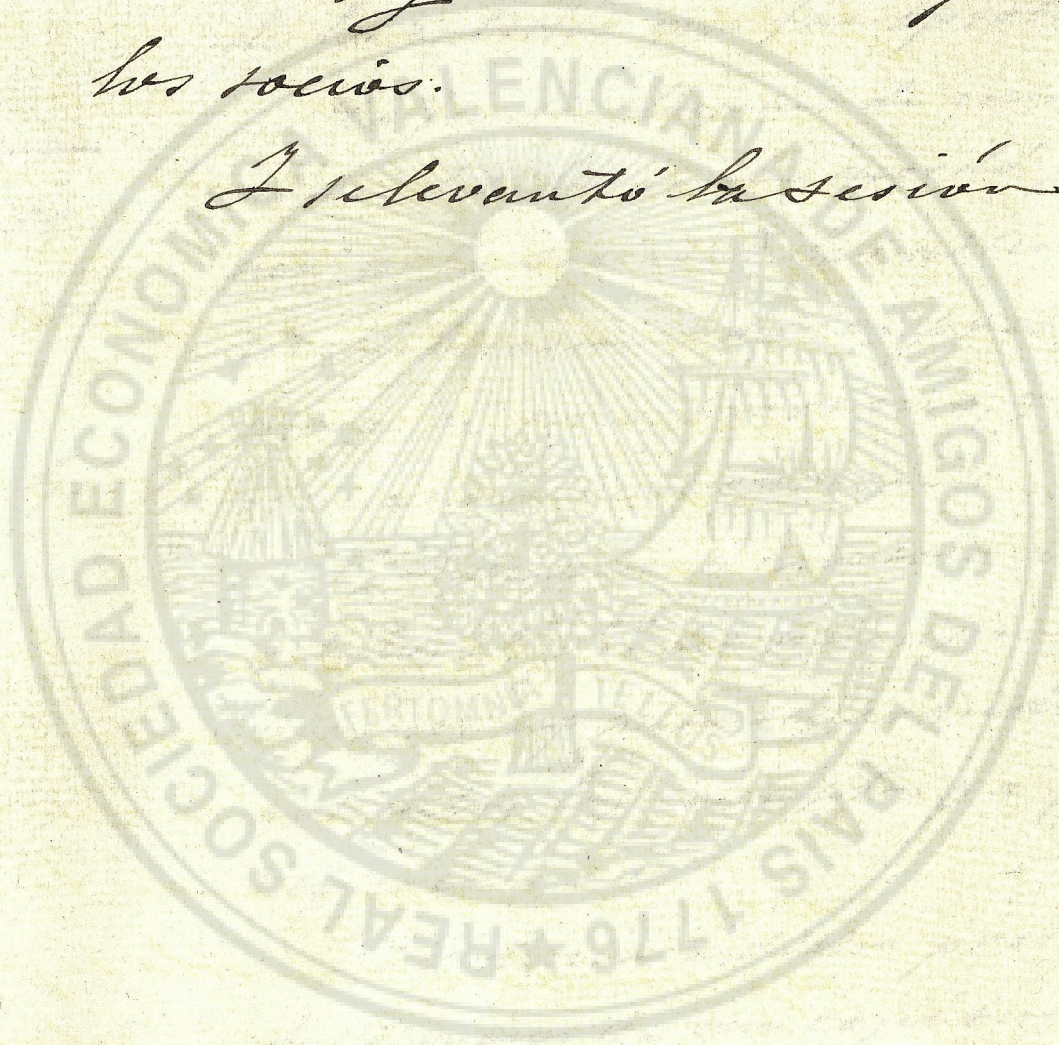 los socios.
Y se levantó la sesión
REAL SOCIEDAD ECONOMICA VALENCIANA DE AMIGOS DEL PAIS 1776